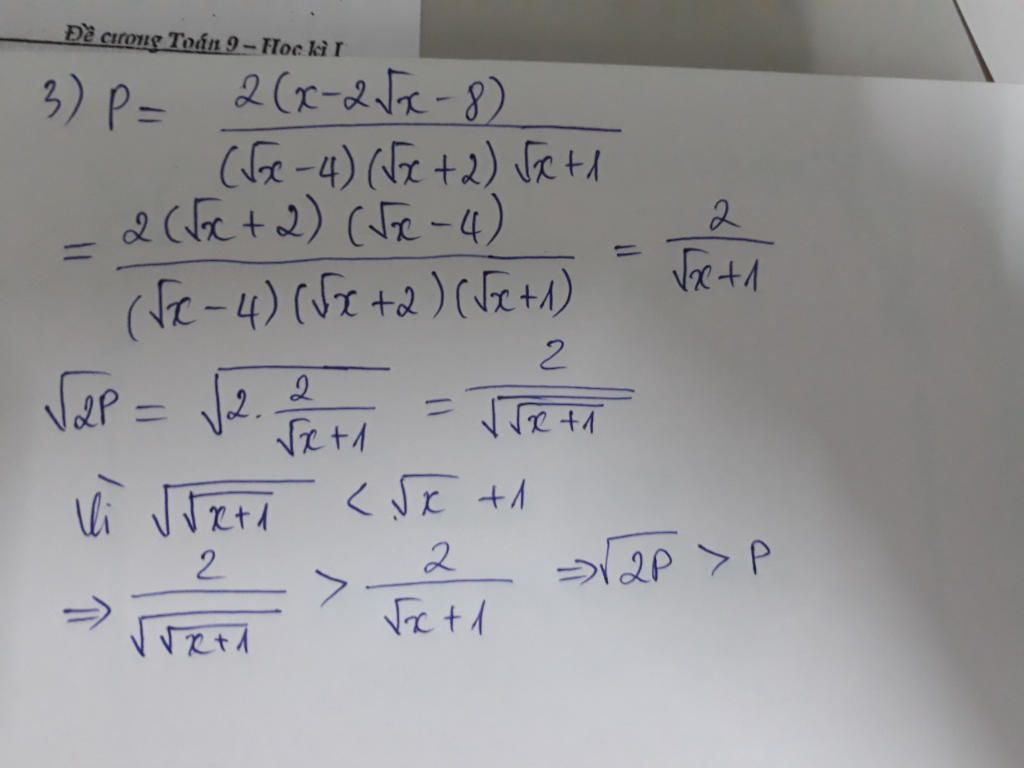 Đề cương Toán 9 – Học kì I
3) P = 2(x-2√x-8) / (√x-4)(√x+2)√x+1
= 2(√x+2)(√x-4) / (√x-4)(√x+2)(√x+1) = 2 / √x+1
√2P = √(2. 2/√x+1) = 2 / √(√x+1)
Vì √(√x+1) < √x +1
⇒ 2 / √(√x+1) > 2 / √x+1 ⇒ √2P > P